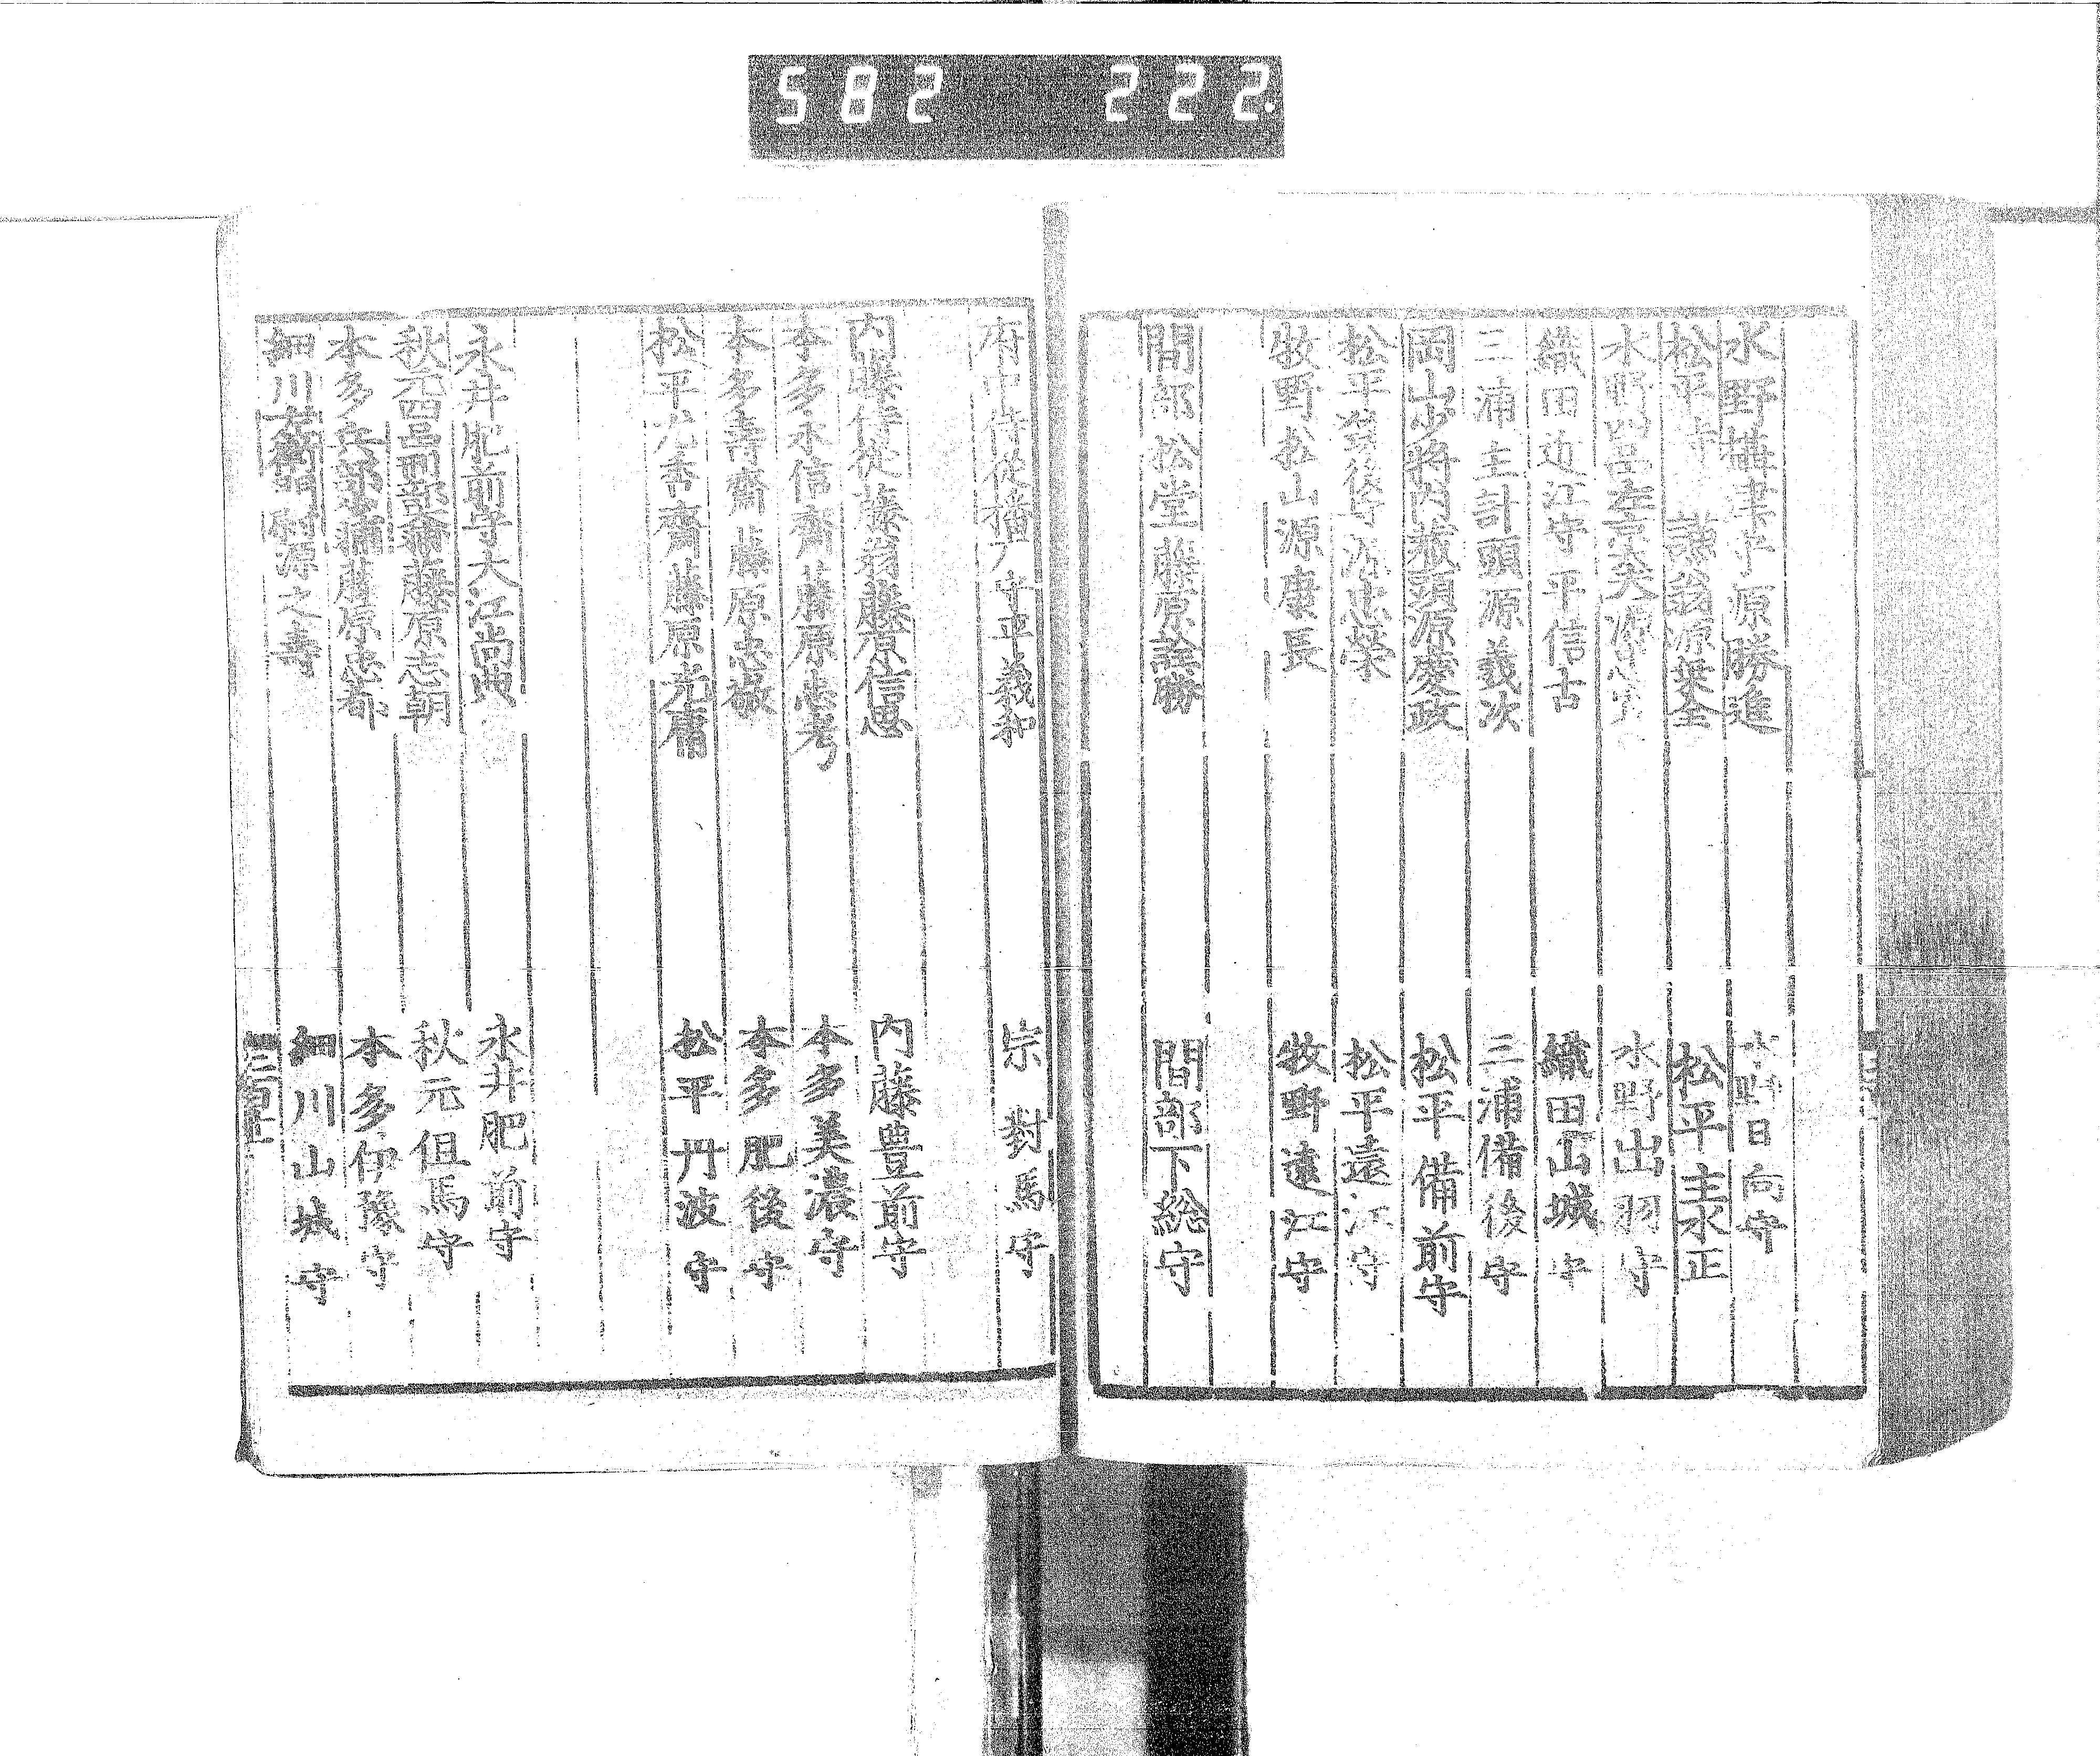 582 222
水野攝津守源勝進 水野日向守
松平 源乗全 松平主水正
水野 左京大夫源 水野出羽守
織田近江守平信古 織田山城守
三浦主計頭源義次 三浦備後守
岡山少将内蔵頭源慶政 松平備前守
松平 後守源忠榮 松平遠江守
牧野松山源廣長 牧野遠江守
間部松堂藤原詮勝 間部下總守
府中侍従播广守平義和 宗對馬守
内藤侍従藤翁藤原信思 内藤豊前守
本多永信齋藤原忠考 本多美濃守
本多壽齋藤原忠徽 本多肥後守
松平 齋藤原光庸 松平丹波守
永井肥前守大江尚 永井肥前守
秋元 藤原志朝 秋元但馬守
本多兵部大輔藤原忠都 本多伊豫守
細川 源之壽 細川山城守